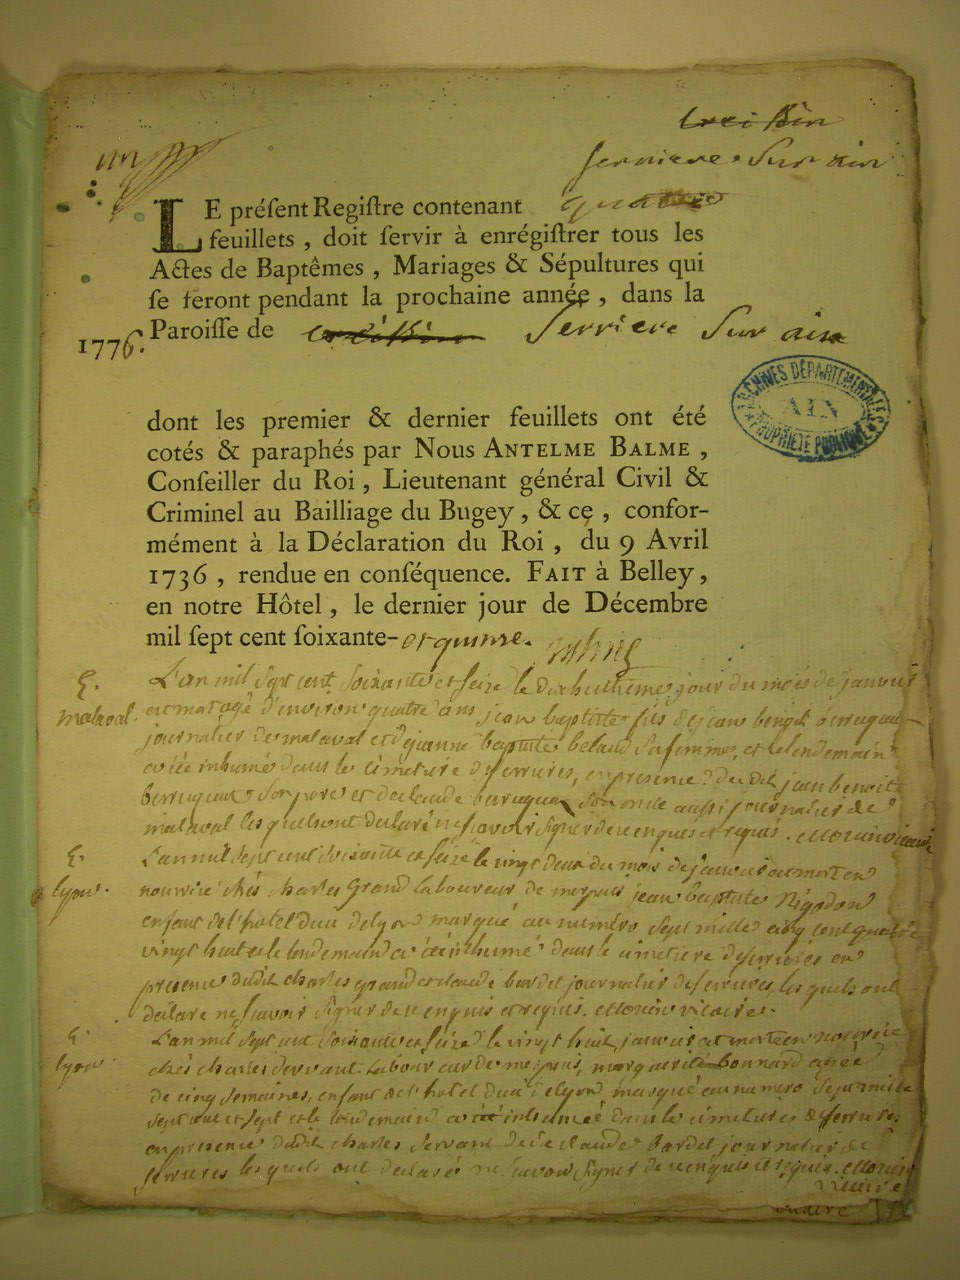 serriere sur ain
un
LE préſent Regiſtre contenant quatre
feuillets , doit ſervir à enrégiſtrer tous les
Actes de Baptêmes , Mariages & Sépultures qui
ſe feront pendant la prochaine année , dans la
1776. Paroiſſe de Serriere Sur ain
ARCHIVES DÉPARTEMENTALES
AIN
PROPRIÉTÉ PUBLIQUE
dont les premier & dernier feuillets ont été
cotés & paraphés par Nous ANTELME BALME ,
Conſeiller du Roi , Lieutenant général Civil &
Criminel au Bailliage du Bugey , & ce , confor-
mément à la Déclaration du Roi , du 9 Avril
1736 , rendue en conſéquence. FAIT à Belley ,
en notre Hôtel , le dernier jour de Décembre
mil ſept cent ſoixante-et quinze.
L'an mil sept cent soixante et seize le dix huitieme jour du mois de janvier
malaval. est mort agé d'environ quatre ans jean baptiste fils de jean benoit
journalier de malaval et de baptiste belaud sa femme, et le lendemain
a été inhumé dans le cimetiere de serrieres, en presence du dit jean benoit
son pere et de claude son oncle aussi journalier de
malaval les quels ont declaré ne scavoir signer de ce enquis et requis.
L'an mil sept cent soixante et seize le vingt deux du mois de janvier est mort en
lyon. nourrice chés charles Grand laboureur de jean baptiste
enfant de l'hotel dieu de lyon marqué au numero sept mille cinq cent quatre
vingt huit et le lendemain a été inhumé dans le cimetiere de serrieres en
presence du dit charles grand et claude bardet journalier de serrieres, les quels ont
declare ne scavoir signer de ce enquis et requis. vicaire.
L'an mil sept cent soixante et seize le vingt huit janvier est morte en nourrice
lyon chés charles servant laboureur de marguerite bonnard agée
de cinq semaines, enfant de l'hotel dieu de lyon marqué au numero sept mille
sept cent et sept et le lendemain a été inhumée dans le cimetiere de serrieres
en presence du dit charles servant et de claude Bardet journalier de
serrieres les quels ont declaré ne scavoir signer de ce enquis et requis.
vicaire